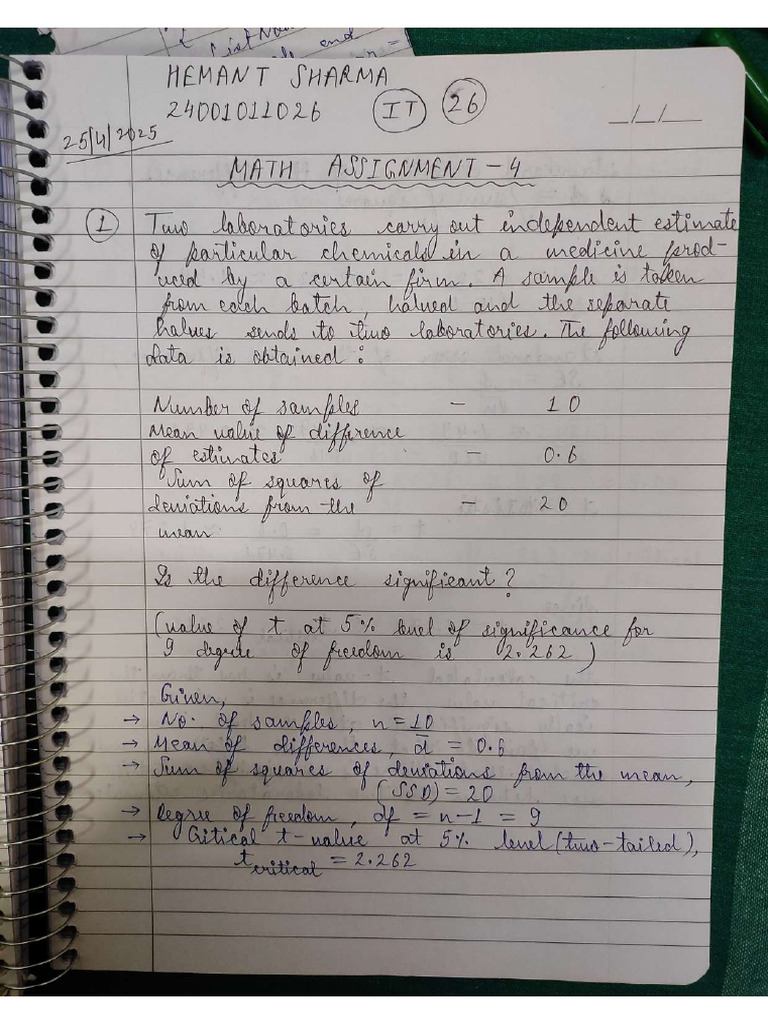 List Nam
and
HEMANT SHARMA
24001011026 IT 26
25/4/2025
__/__/__
MATH ASSIGNMENT - 4
1 Two laboratories carry out independent estimate
of particular chemicals in a medicine prod-
uced by a certain firm. A sample is taken
from each batch, halved and the separate
halves sends to two laboratories. The following
data is obtained :
Number of samples - 10
Mean value of difference
of estimates - 0.6
Sum of squares of
deviations from the - 20
mean
Is the difference significant?
(value of t at 5% level of significance for
9 degree of freedom is 2.262)
Given,
→ No. of samples, n = 10
→ Mean of differences, d̄ = 0.6
→ Sum of squares of deviations from the mean,
(SSD) = 20
→ Degree of freedom, df = n-1 = 9
→ Critical t-value at 5% level (two-tailed),
t critical = 2.262